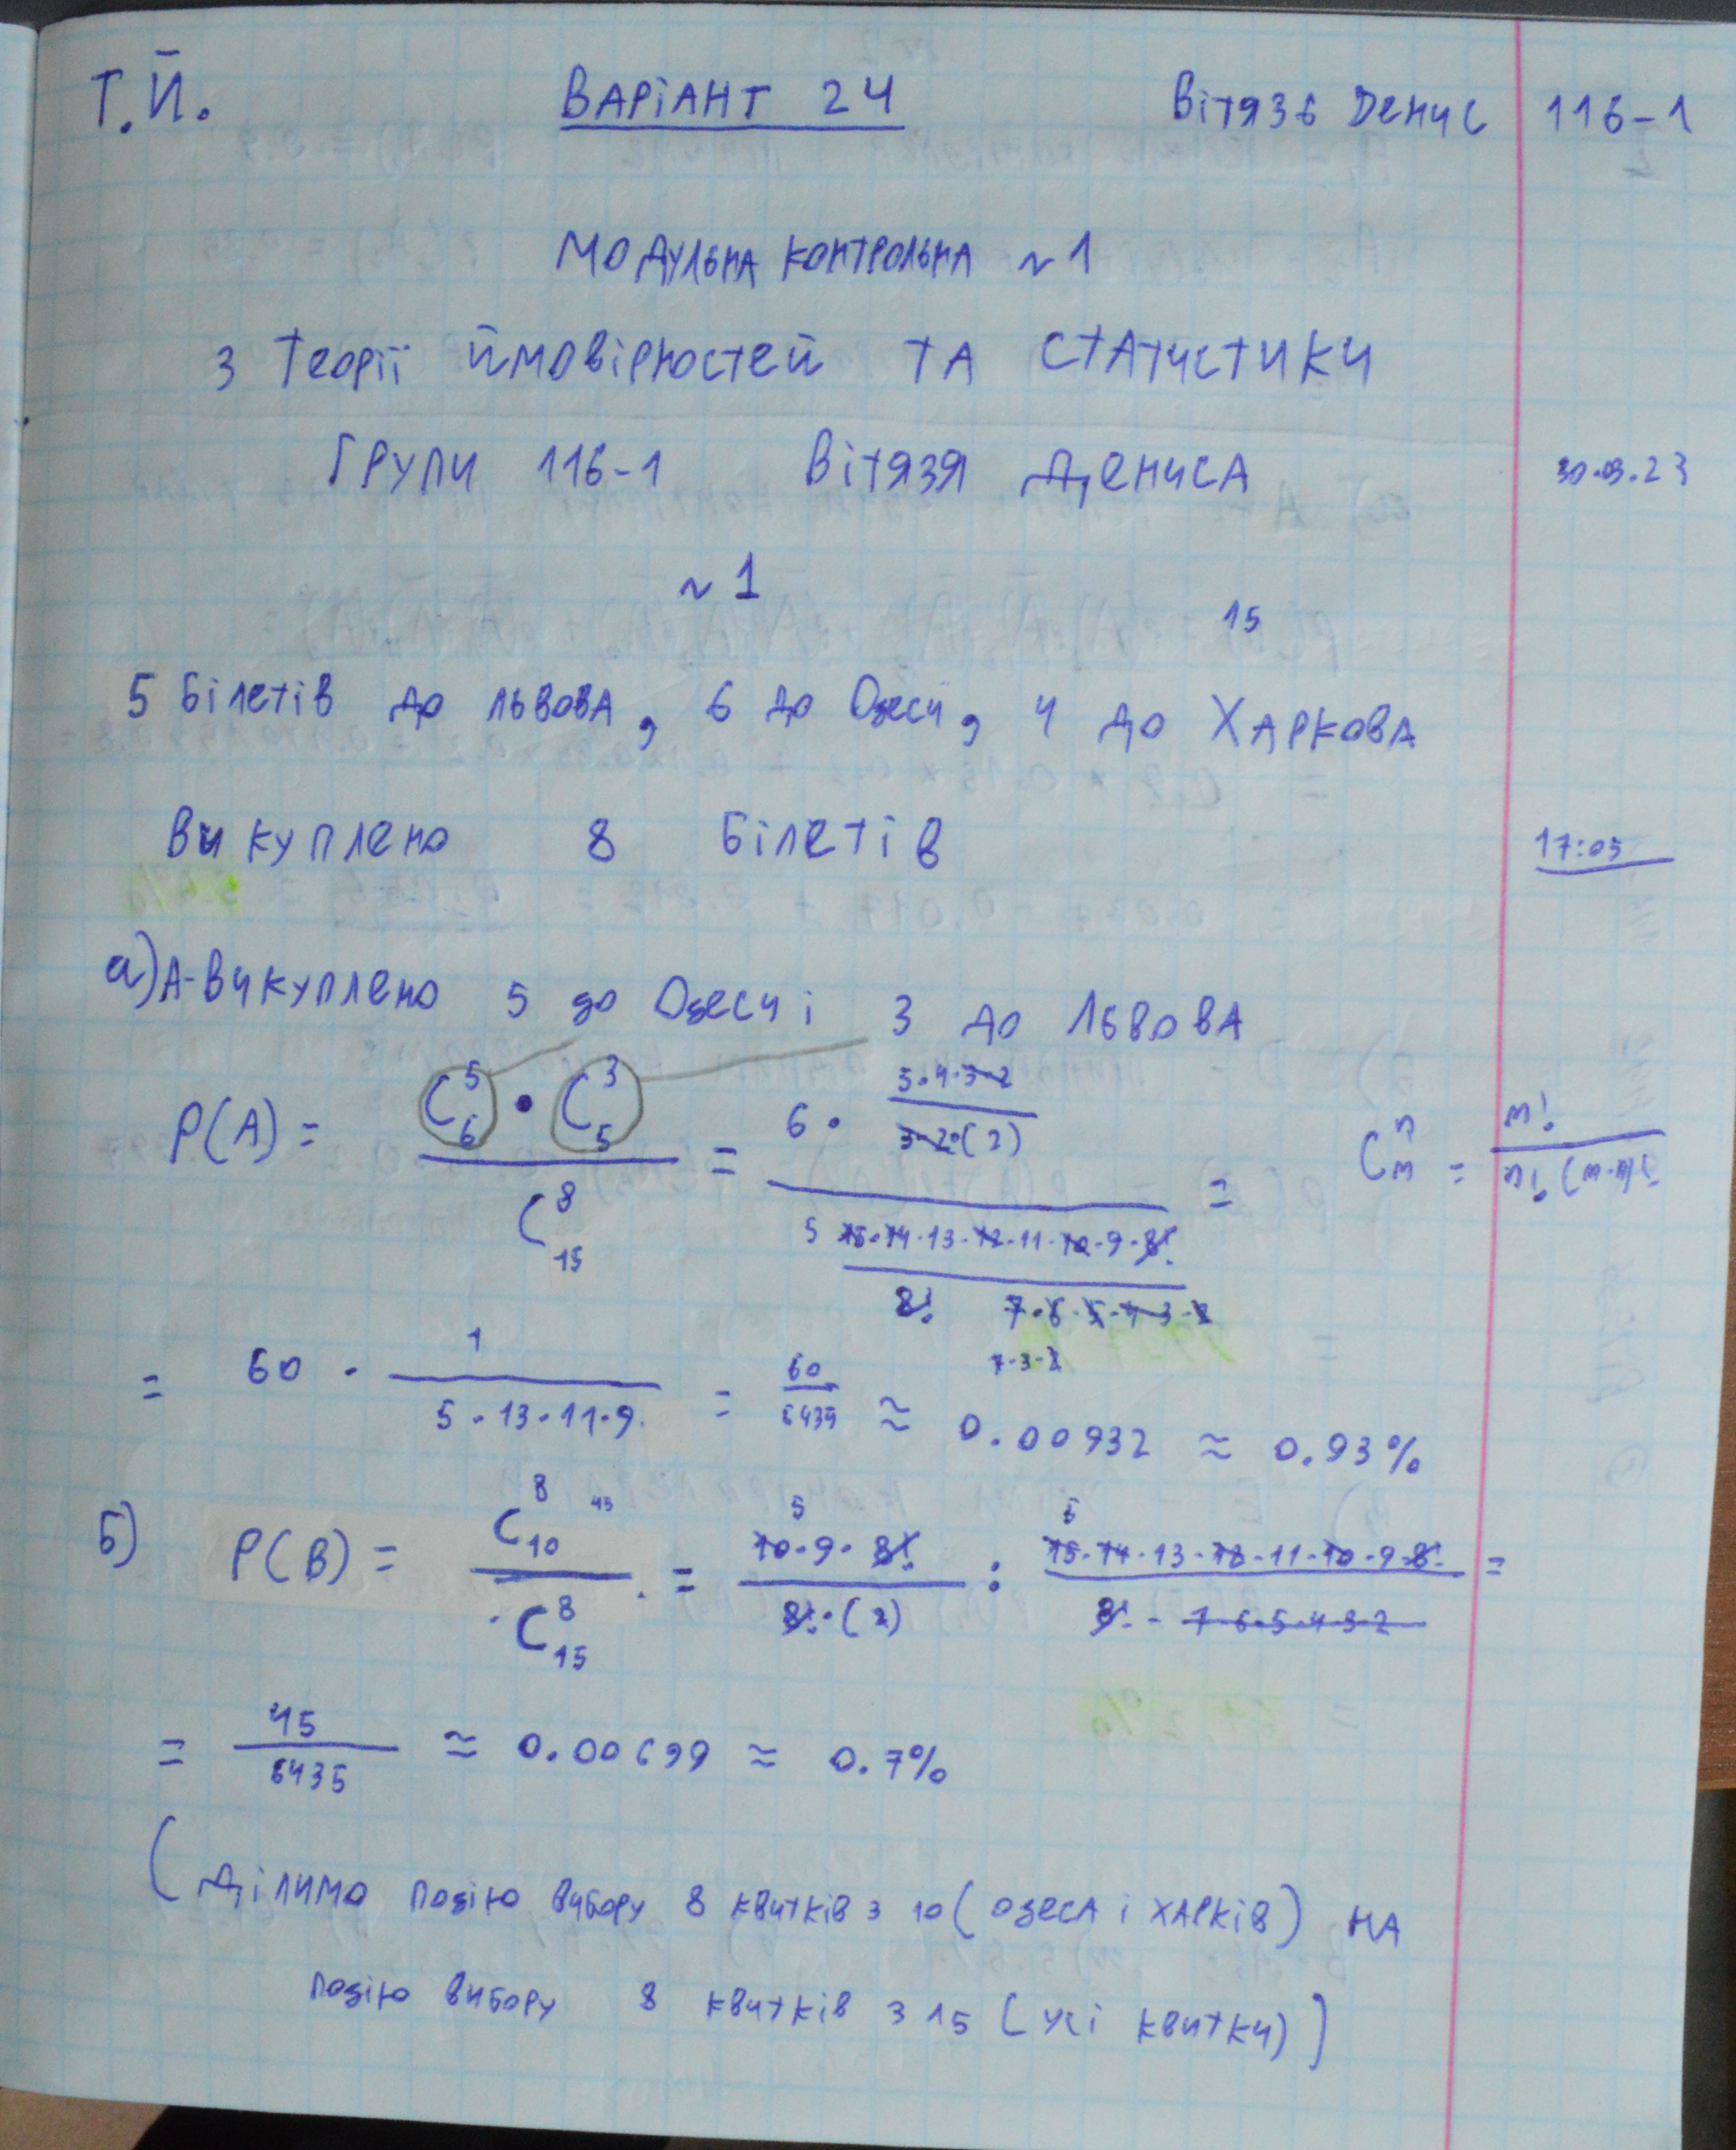 Т.Й. ВАРІАНТ 24 Вітязь Денис 116-1
МОДУЛЬНА КОНТРОЛЬНА ~1
З Теорії ймовірностей ТА СТАТИСТИКИ
ГРУПИ 116-1 Вітязя Дениса 30.03.23
~1
15
5 білетів до Львова, 6 до Одеси, 4 до Харкова
Викуплено 8 білетів 17:05
а) А-Викуплено 5 до Одеси і 3 до Львова
P(A) = (C_6^5 • C_5^3) / C_15^8 = 6 • (5•4•3•2) / (3•2•(2)) / 5 (15•14•13•12•11•10•9•8!) / (8! 7•6•5•4•3•2) = C_m^n = m! / (n! (m-n)!)
7•3•2
= 60 • 1 / (5•13•11•9) = 60 / 6435 ≈ 0.00932 ≈ 0.93%
б) P(B) = C_10^8 45 / C_15^8 = 5 (10•9•8!) / (8!•(2)) : (15•14•13•12•11•10•9•8!) / (8! - 7•6•5•4•3•2) =
= 45 / 6435 ≈ 0.00699 ≈ 0.7%
(Ділимо подію вибору 8 квитків з 10 (Одеса і Харків) на
подію вибору 8 квитків з 15 (усі квитки))